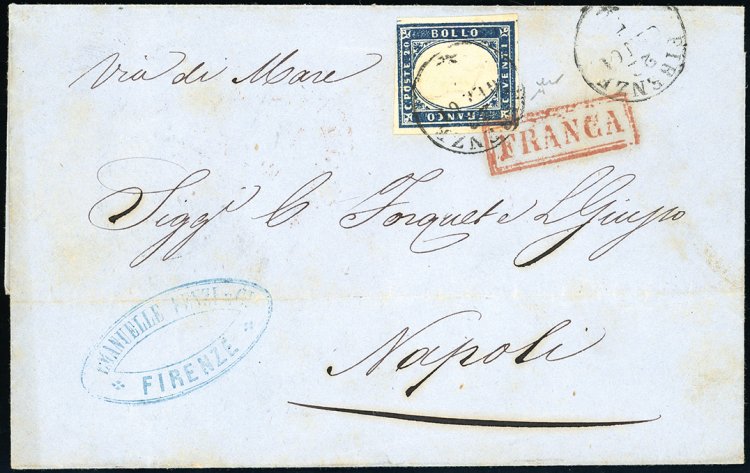 BOLLO
POSTE
C. VENTI
20
FRANCO
FIRENZE
Via di Mare
FRANCA
Sigg.i C. Forquet e L. Giusso
EMANUELLE FENZI e C.
FIRENZE
Napoli